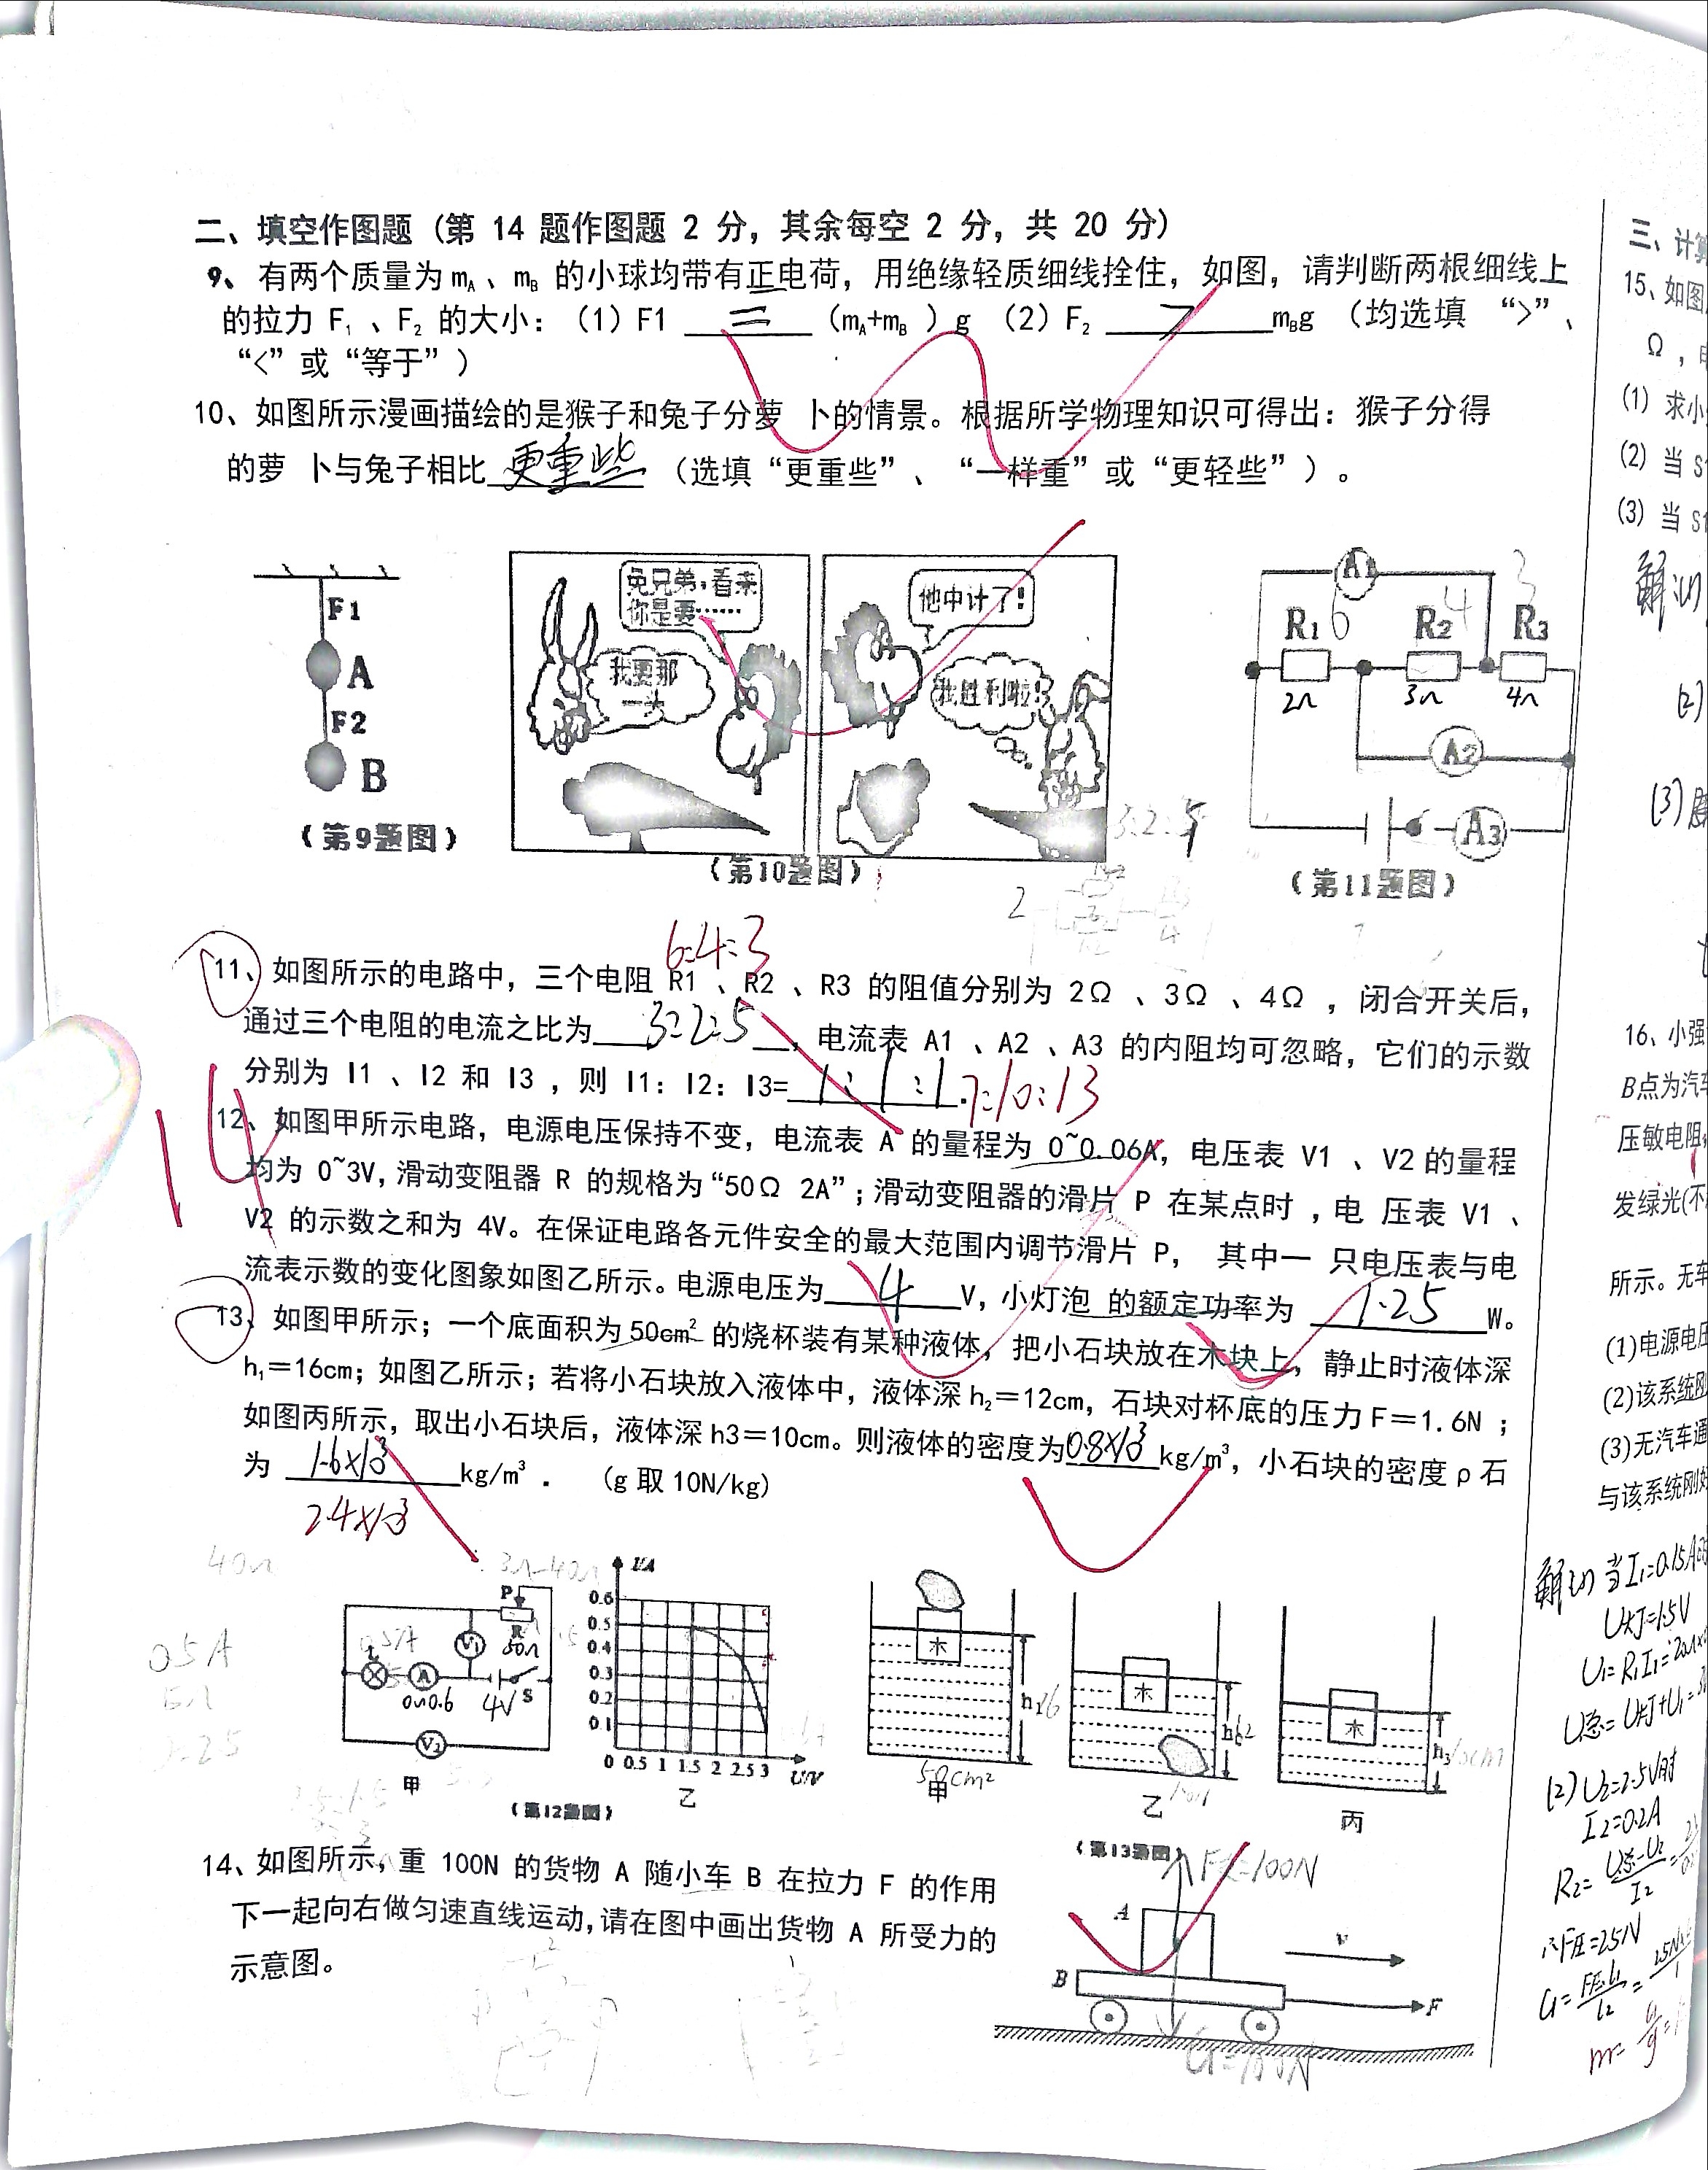 二、填空作图题（第 14 题作图题 2 分，其余每空 2 分，共 20 分）
9、有两个质量为 mA 、mB 的小球均带有正电荷，用绝缘轻质细线拴住，如图，请判断两根细线上
的拉力 F₁ 、F₂ 的大小：（1）F1 = （mA+mB ）g （2）F₂ > mBg （均选填 “>”、
“<” 或 “等于”）
10、如图所示漫画描绘的是猴子和兔子分萝 卜的情景。根据所学物理知识可得出：猴子分得
的萝 卜与兔子相比 更重些 （选填 “更重些”、 “一样重” 或 “更轻些”）。
F1
A
F2
B
（第9题图）
兔兄弟，看来
你是要……
我要那
一大
他中计了！
我胜利啦！
（第10题图）
3:2:5
A1
R1 6 R2 4 R3 3
2Ω 3Ω 4Ω
A2
A3
（第11题图）
6:4:3
11、如图所示的电路中，三个电阻 R1 、R2 、R3 的阻值分别为 2Ω 、3Ω 、4Ω ，闭合开关后，
通过三个电阻的电流之比为 3:2:5 ，电流表 A1 、A2 、A3 的内阻均可忽略，它们的示数
分别为 I1 、I2 和 I3 ，则 I1: I2: I3= 1:1:1 . 7:10:13
14
12、如图甲所示电路，电源电压保持不变，电流表 A 的量程为 0~0.06A，电压表 V1 、V2 的量程
均为 0~3V，滑动变阻器 R 的规格为“50Ω 2A”；滑动变阻器的滑片 P 在某点时 ，电 压表 V1 、
V2 的示数之和为 4V。在保证电路各元件安全的最大范围内调节滑片 P， 其中一 只电压表与电
流表示数的变化图象如图乙所示。电源电压为 4 V，小灯泡 的额定功率为 1.25 W。
13、如图甲所示；一个底面积为 50cm² 的烧杯装有某种液体，把小石块放在木块上，静止时液体深
h₁＝16cm；如图乙所示；若将小石块放入液体中，液体深 h₂＝12cm，石块对杯底的压力 F＝1.6N ；
如图丙所示，取出小石块后，液体深 h3＝10cm。则液体的密度为 0.8×10³ kg/m³，小石块的密度 ρ 石
为 1.6×10³ kg/m³ . (g 取 10N/kg)
2.4×10³
40Ω
0.5A
P
R
50Ω
V1
A
0~0.6
4V
S
V2
甲
I/A
0.6
0.5
0.4
0.3
0.2
0.1
0 0.5 1 1.5 2 2.5 3 U/V
乙
（第12题图）
木
h₁16
50cm²
甲
木
乙
木
丙
（第13题图）
14、如图所示，重 100N 的货物 A 随小车 B 在拉力 F 的作用
下一起向右做匀速直线运动，请在图中画出货物 A 所受力的
示意图。
F支=100N
A
v
B
F
G=100N
三、计算
15、如图
Ω ，电
(1) 求小
(2) 当 S
(3) 当 S1
解：(1)
(2)
(3)
16、小强
B点为汽车
压敏电阻
发绿光(不
所示。无车
(1)电源电压
(2)该系统刚
(3)无汽车通
与该系统刚好
解：(1) 当I₁=0.15A
U灯=1.5V
U₁=R₁I₁=20Ω×
U总=U灯+U₁=3
(2) U₂=2.5V时
I₂=0.2A
R₂=(U总-U₂)/I₂=
∴F压=25N